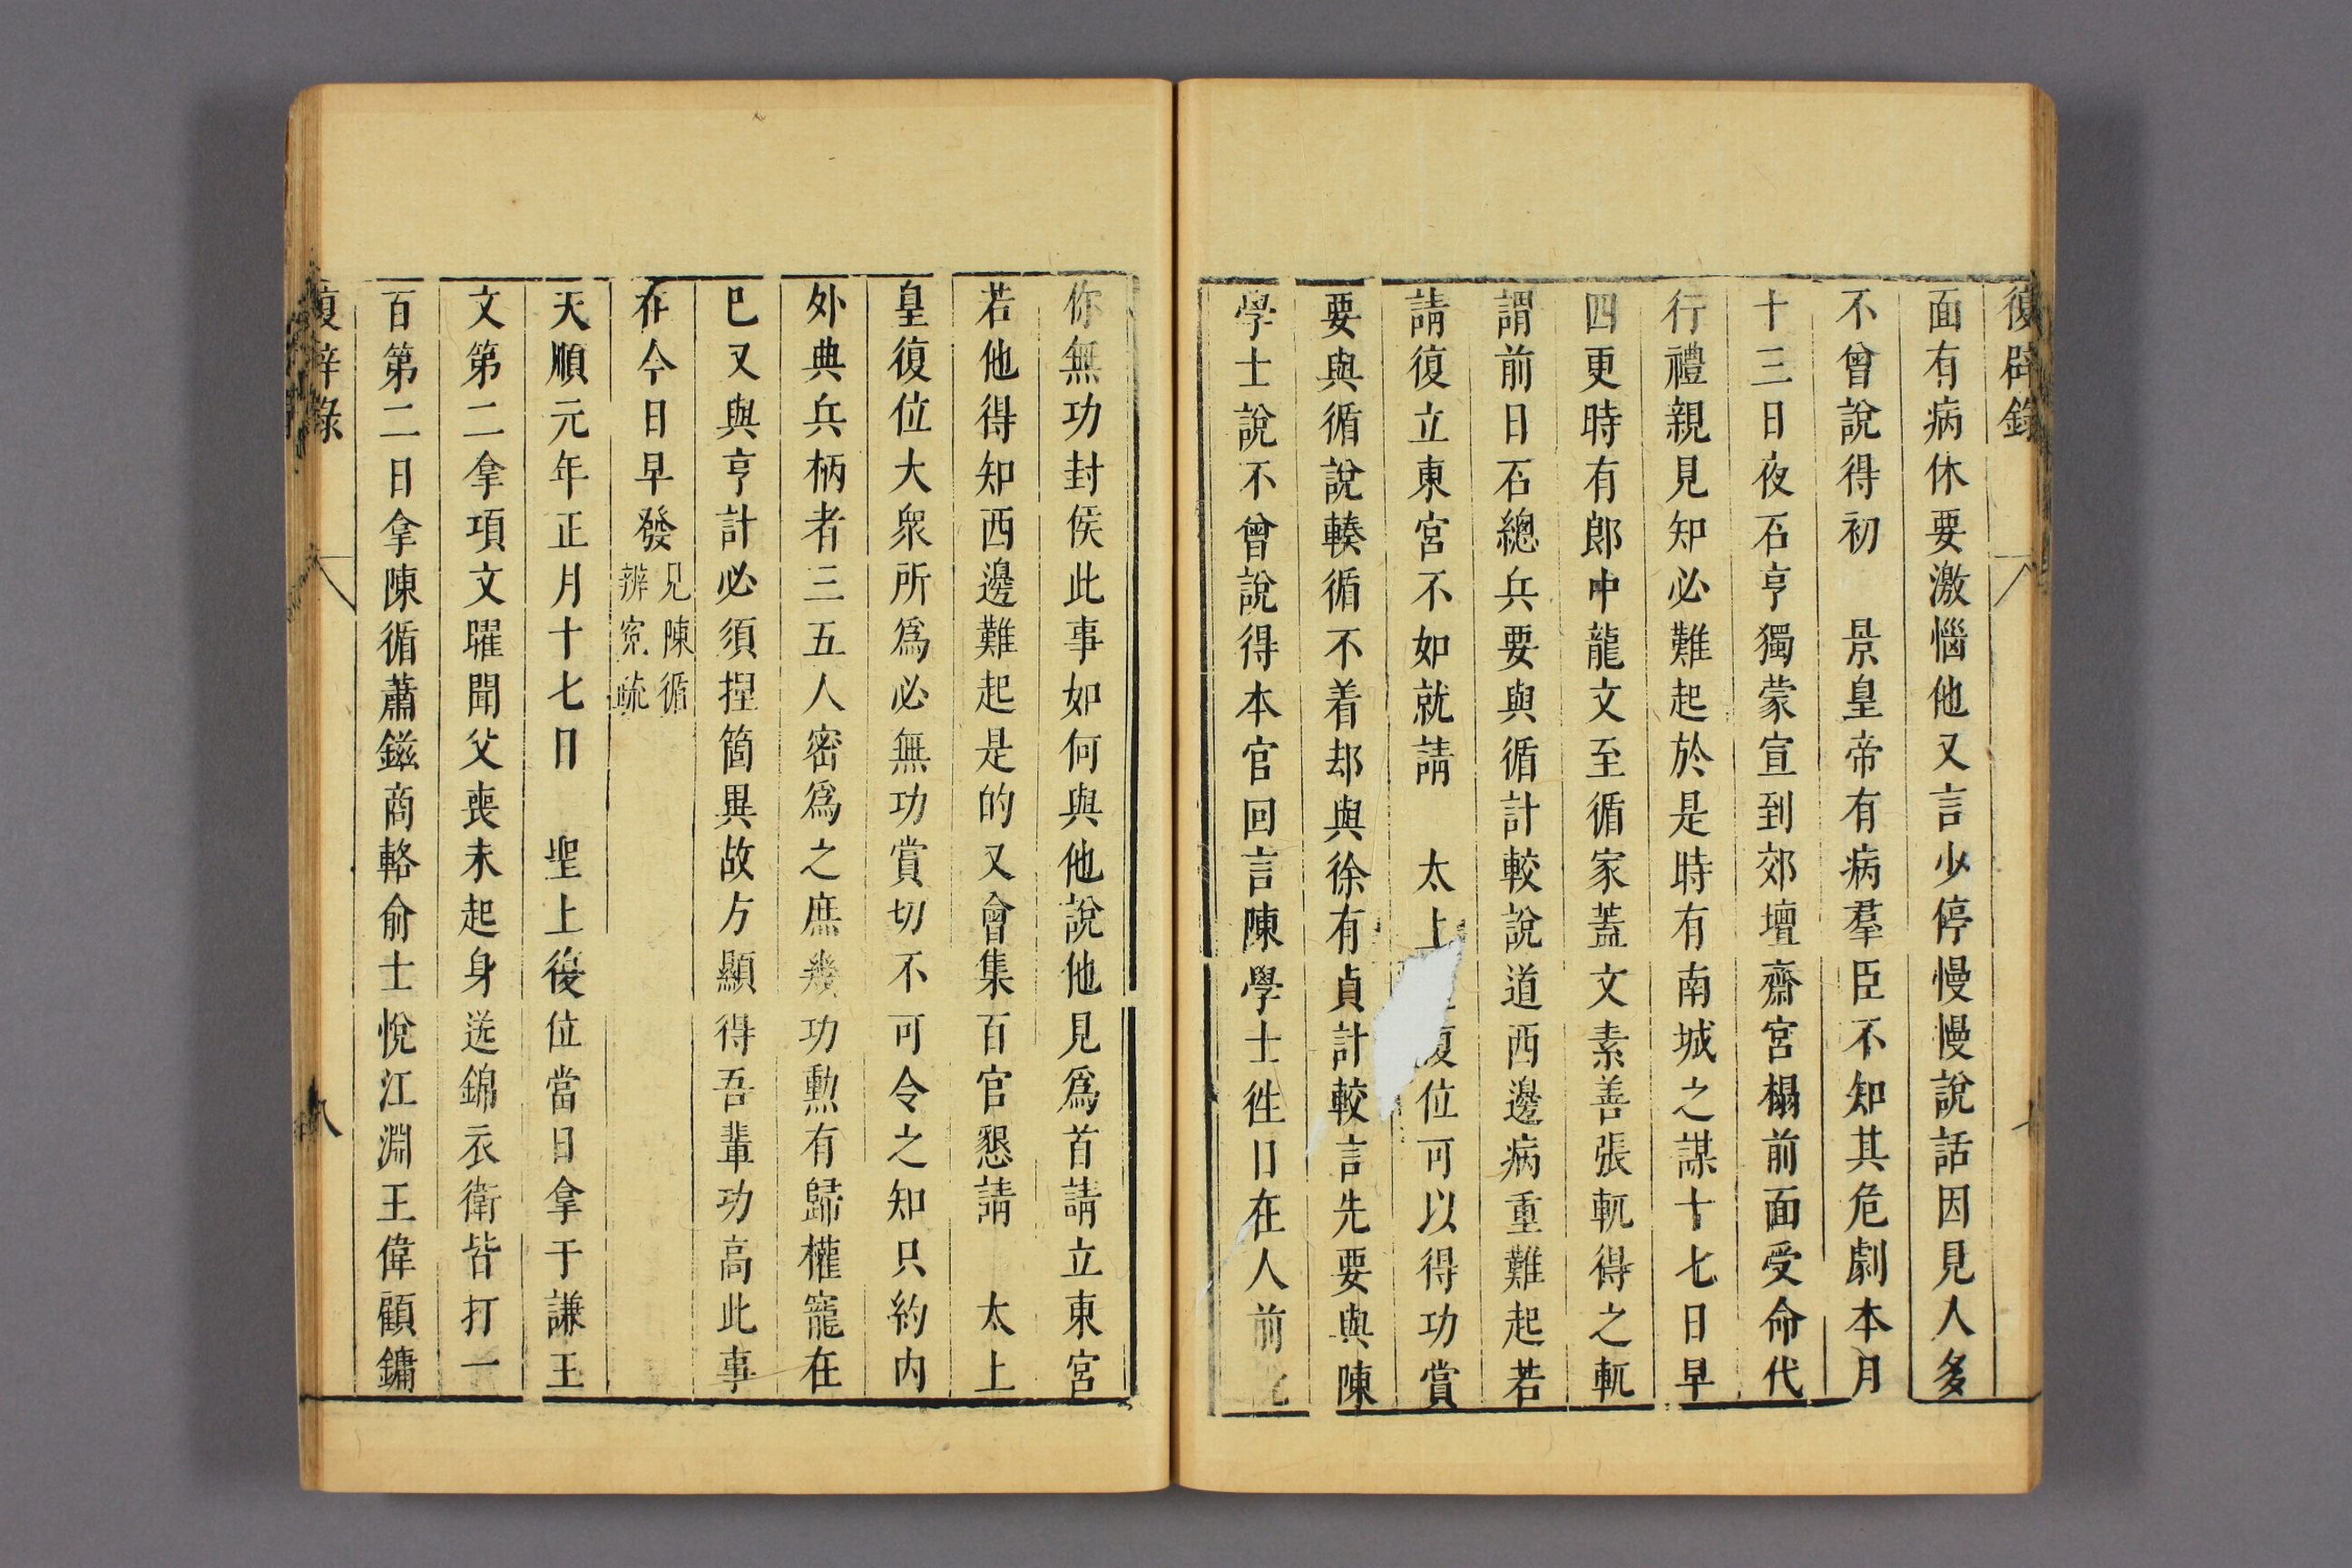 復辟錄
面有病休要激惱他又言少停慢慢說話因見人多
不曾說得初　景皇帝有病羣臣不知其危劇本月
十三日夜石亨獨蒙宣到郊壇齋宮榻前面受命代
行禮親見知必難起於是時有南城之謀十七日早
四更時有郎中龍文至循家蓋文素善張軏得之軏
謂前日石總兵要與循計較說道西邊病重難起若
請復立東宮不如就請　太上復位可以得功賞
要與循說輳循不着却與徐有貞計較言先要與陳
學士說不曾說得本官回言陳學士徃日在人前
你無功封侯此事如何與他說他見爲首請立東宮
若他得知西邊難起是的又會集百官懇請　太上
皇復位大衆所爲必無功賞切不可令之知只約內
外典兵柄者三五人密爲之庶幾功勲有歸權寵在
已又與亨計必須捏箇異故方顯得吾輩功高此事
在今日早發見陳循
辨寃疏
天順元年正月十七日　聖上復位當日拿于謙王
文第二拿項文曜聞父喪未起身送錦衣衛皆打一
百第二日拿陳循蕭鎡商輅俞士悅江淵王偉顧鏞
復辟錄
八